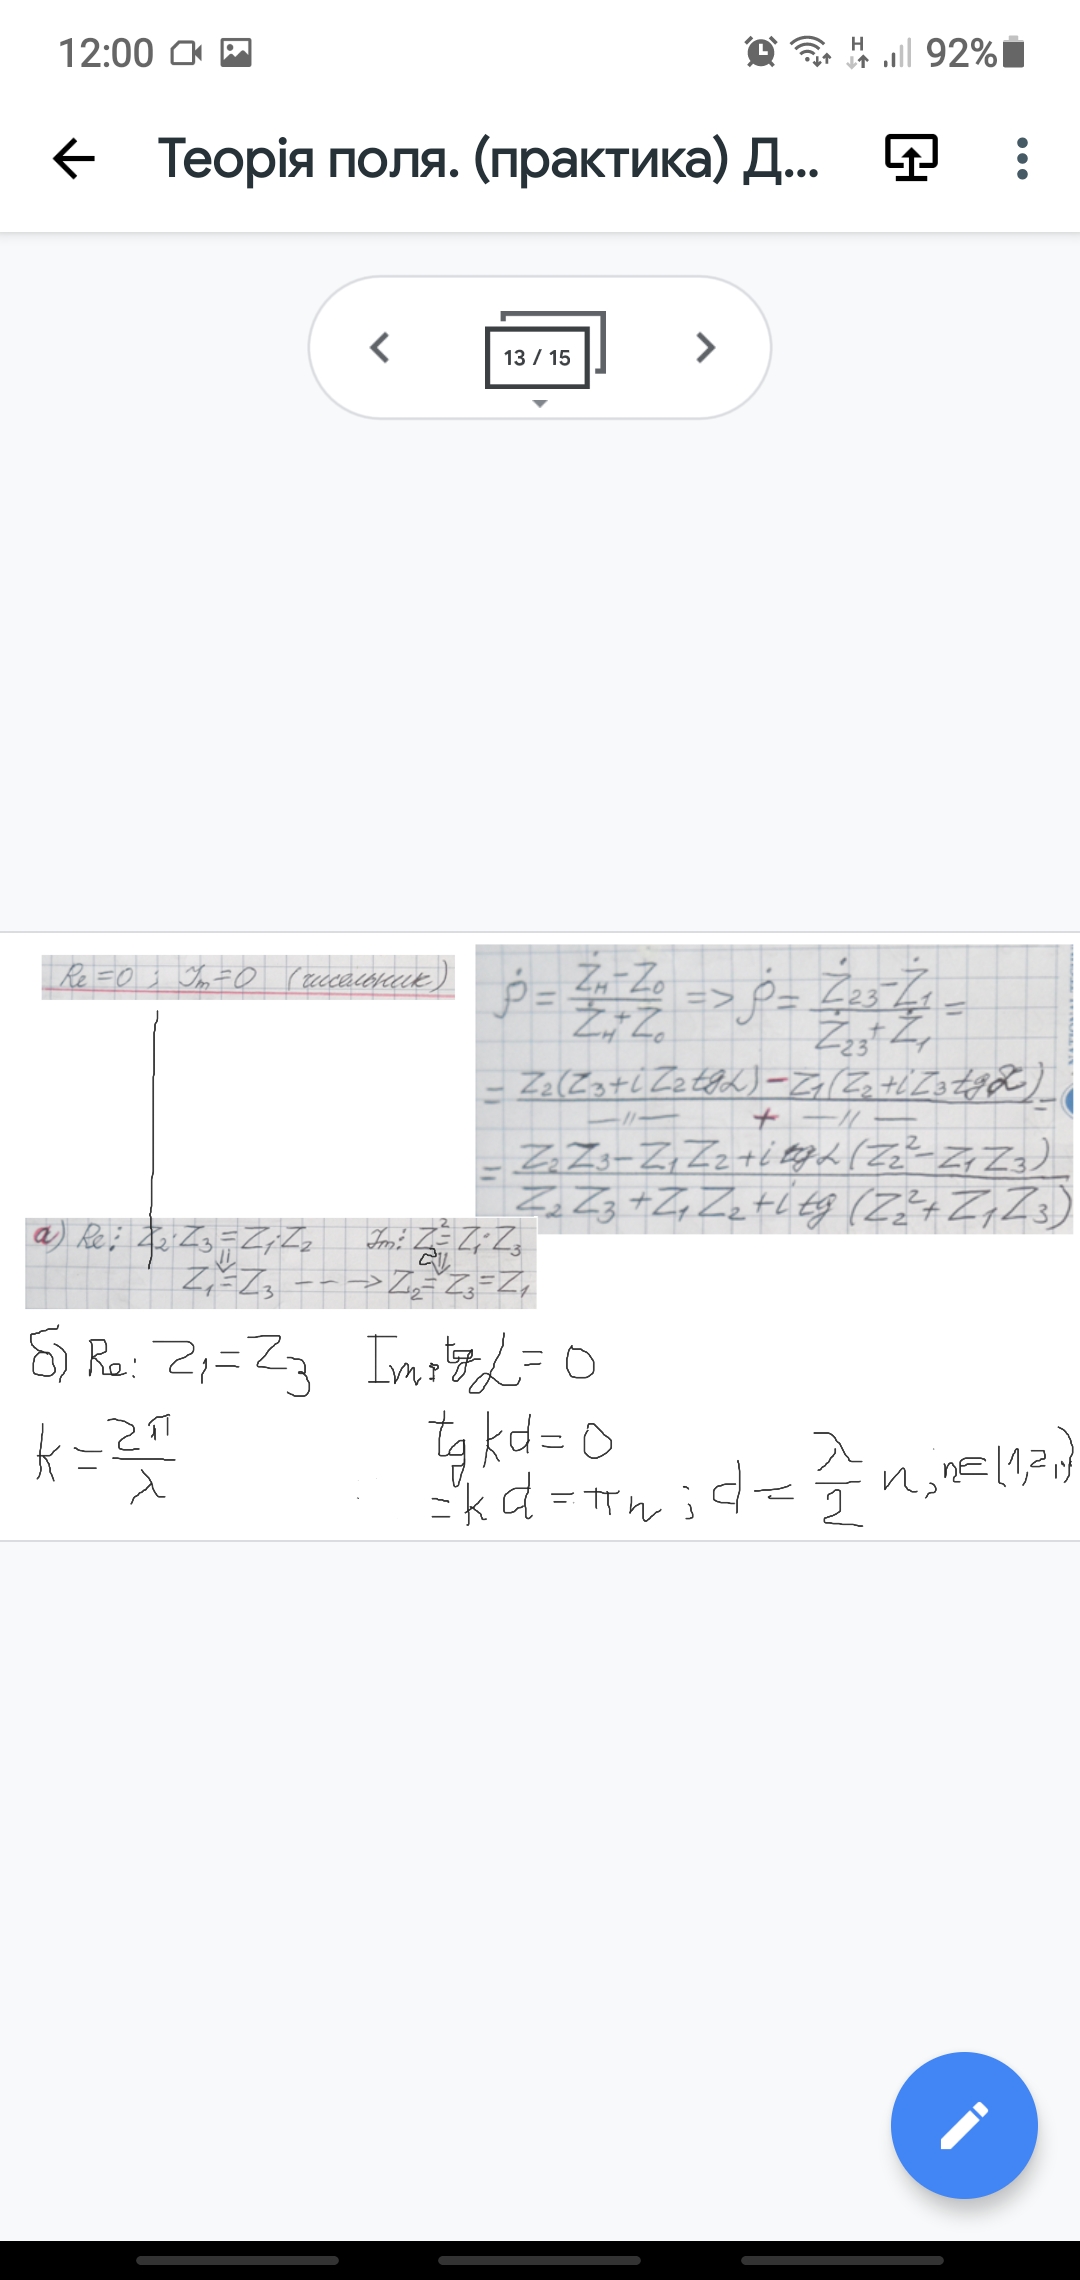 12:00 H 92%
Теорія поля. (практика) Д...
13 / 15
Re=0 ; Im=0 (чисельник)
ρ̇ = (Ż_H − Z_0)/(Ż_H + Z_0) => ρ̇ = (Ż_23 − Ż_1)/(Ż_23 + Ż_1) =
= Z_2(Z_3+iZ_2tgα) − Z_1(Z_2+iZ_3tgα) =
—//— + —//—
= (Z_2Z_3−Z_1Z_2+itgα(Z_2²−Z_1Z_3))/(Z_2Z_3+Z_1Z_2+itg(Z_2²+Z_1Z_3))
а) Re: Z_2·Z_3=Z_1·Z_2 Im: Z_2²=Z_1·Z_3
Z_1=Z_3 ---> Z_2=Z_3=Z_1
б) Re: Z_1=Z_3 Im: tgα=0
k=2π/λ tg kd=0
=kd=πn ; d=λ/2 n, n∈{1,2,}